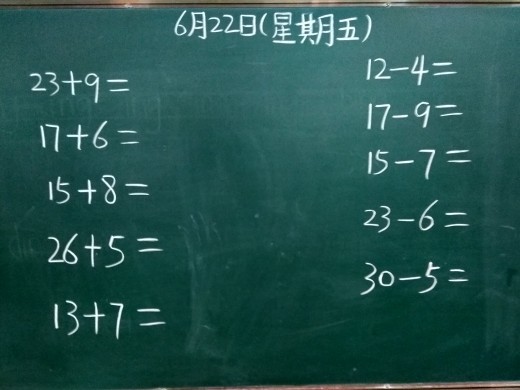 6月22日(星期五)
23+9=
17+6=
15+8=
26+5=
13+7=
12-4=
17-9=
15-7=
23-6=
30-5=